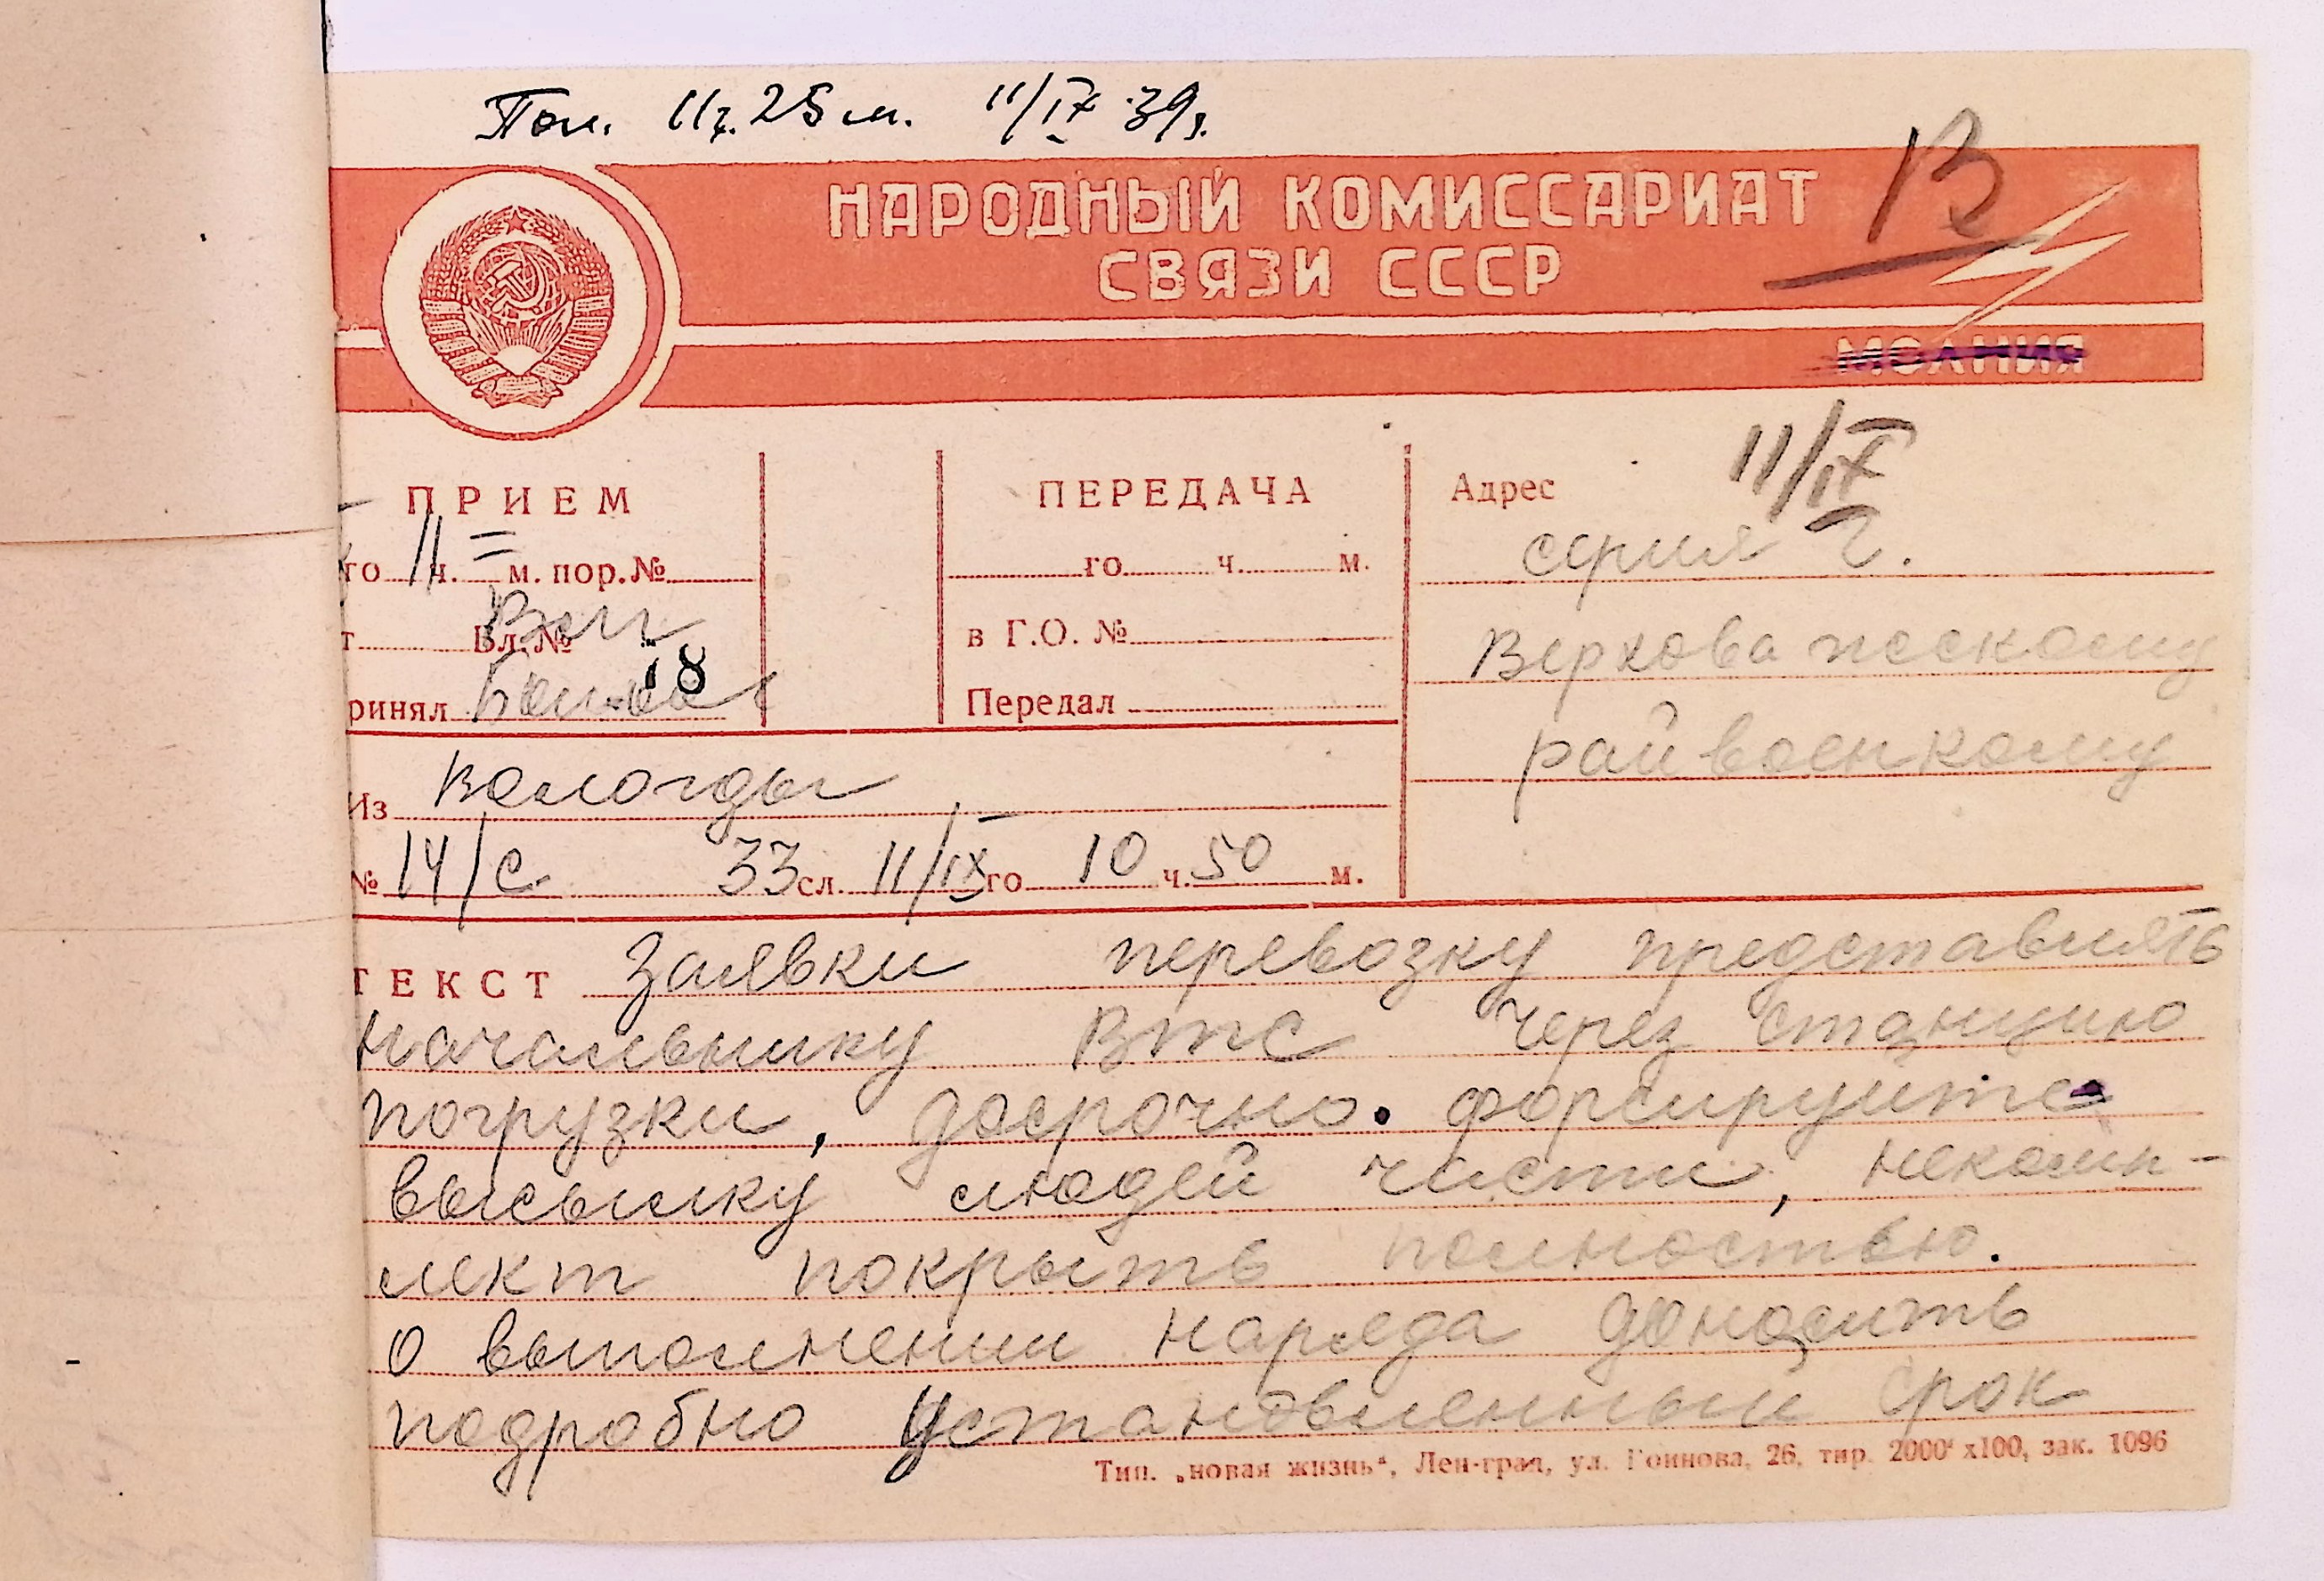 Пол. 11ч. 25 м. 11/IX 39г.
В
НАРОДНЫЙ КОМИССАРИАТ
СВЯЗИ СССР
МОЛНИЯ
11/IX
ПРИЕМ
го 11 ч. = м. пор. №
Бл. №
18
ринял
ПЕРЕДАЧА
го ч. м.
в Г.О. №
Передал
Адрес
серия Г.
Верховажскому
райвоенкому
Из Вологды
№ 14/с 33 сл. 11/IX го 10 ч. 50 м.
ТЕКСТ Заявки перевозку представлять
начальнику ВТС через станцию
погрузки, досрочно. форсируйте
высылку людей части, некомп-
лект покрыть полностью.
о выполнении наряда доносить
подробно установленный срок
Тип. „новая жизнь“, Лен-град, ул. Воинова, 26, тир. 2000 х100, зак. 1096